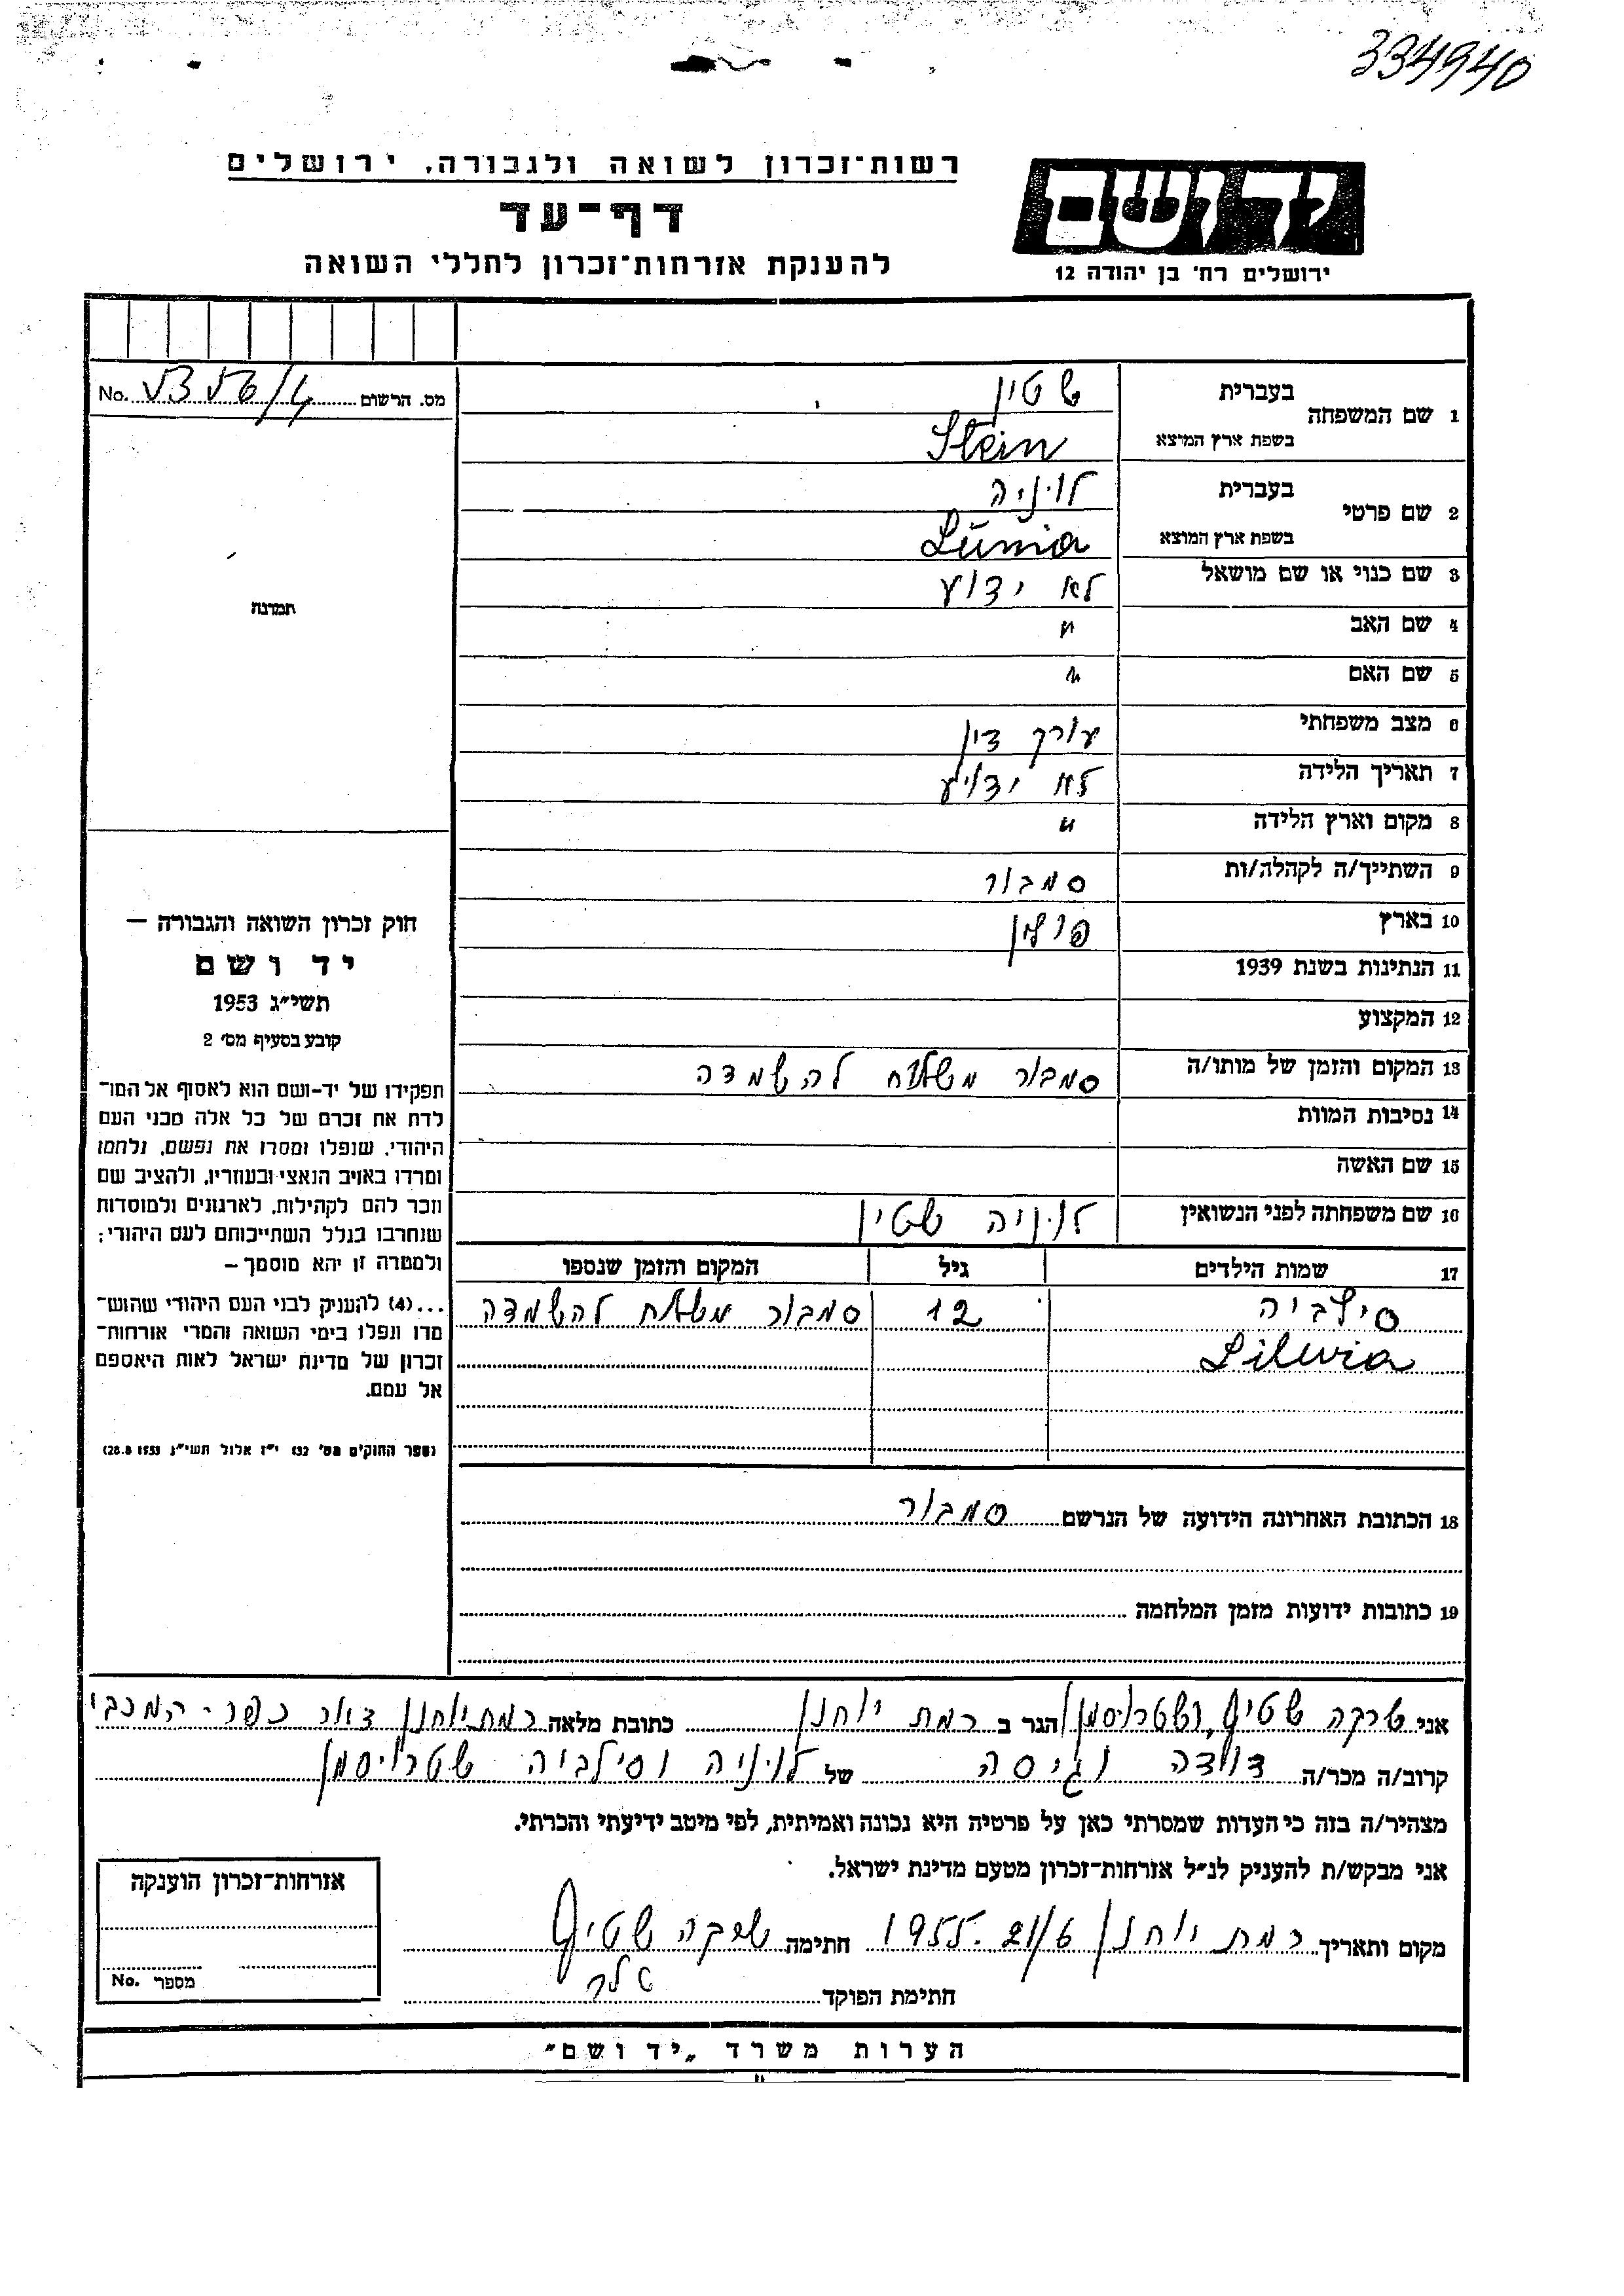 334940
רשות־זכרון לשואה ולגבורה, ירושלים
דף־עד
להענקת אזרחות־זכרון לחללי השואה
יד ושם
ירושלים רח' בן יהודה 12
מס. הרשום No.
1 שם המשפחה בעברית שטיין
בשפת ארץ המוצא Stein
2 שם פרטי בעברית לוניה
בשפת ארץ המוצא Lúnia
3 שם כנוי או שם מושאל לא ידוע
4 שם האב "
5 שם האם "
6 מצב משפחתי עורך דין
7 תאריך הלידה לא ידוע
8 מקום וארץ הלידה "
9 השתייך/ה לקהלה/ות סמבור
10 בארץ פולין
11 הנתינות בשנת 1939
12 המקצוע
13 המקום והזמן של מותו/ה סמבור משלוח להשמדה
14 נסיבות המוות
15 שם האשה
16 שם משפחתה לפני הנשואין לוניה שטיין
17 שמות הילדים גיל המקום והזמן שנספו
סילביה 12 סמבור משלוח להשמדה
Silwia
18 הכתובת האחרונה הידועה של הנרשם סמבור
19 כתובות ידועות מזמן המלחמה
תמונה
חוק זכרון השואה והגבורה —
יד ושם
תשי"ג 1953
קובע בסעיף מס' 2
תפקידו של יד-ושם הוא לאסוף אל המו־
לדת את זכרם של כל אלה מבני העם
היהודי, שנפלו ומסרו את נפשם, נלחמו
ומרדו באויב הנאצי ובעוזריו, ולהציב שם
וזכר להם לקהילות, לארגונים ולמוסדות
שנחרבו בגלל השתייכותם לעם היהודי;
ולמטרה זו יהא מוסמך —
...(4) להעניק לבני העם היהודי שהוש־
מדו ונפלו בימי השואה והמרי אזרחות־
זכרון של מדינת ישראל לאות היאספם
אל עמם.
(ספר החוקים מס' 132 י"ז אלול תשי"ג 28.8.1953)
אני שרקה שטיין הגר ב רמת יוחנן כתובת מלאה רמת יוחנן דאר כפר-המכבי
קרוב/ה מכר/ה דודה וגיסה של לוניה וסילביה שטרויסמן
מצהיר/ה בזה כי העדות שמסרתי כאן על פרטיה היא נכונה ואמיתית, לפי מיטב ידיעתי והכרתי.
אני מבקש/ת להעניק לנ"ל אזרחות-זכרון מטעם מדינת ישראל.
מקום ותאריך רמת יוחנן 21/6. 1955 חתימה שרקה שטיין
חתימת הפוקד
אזרחות-זכרון הוענקה
מספר No.
הערות משרד "יד ושם"